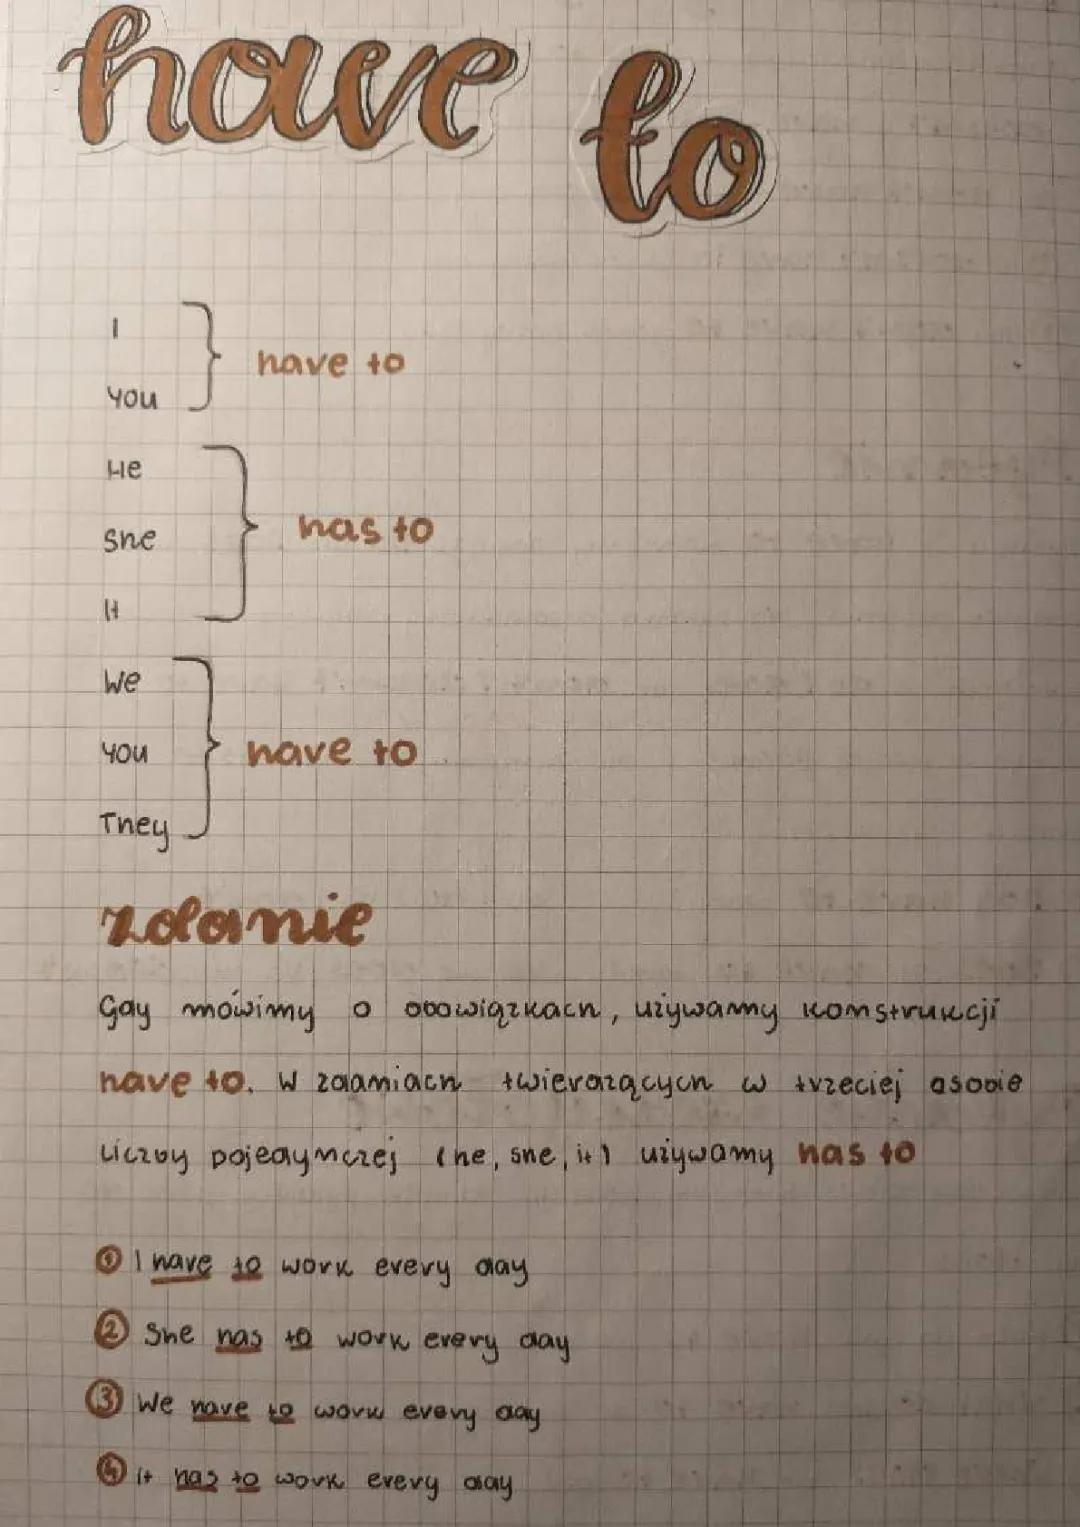 have to
I
you
have to
He
She
It
has to
We
you
They
have to
zdanie
Gdy mówimy o obowiązkach, używamy konstrukcji
have to. W zdaniach twierdzących w trzeciej osobie
liczby pojedynczej (he, she, it) używamy has to
① I have to work every day
② She has to work every day
③ We have to work every day
④ it has to work every day